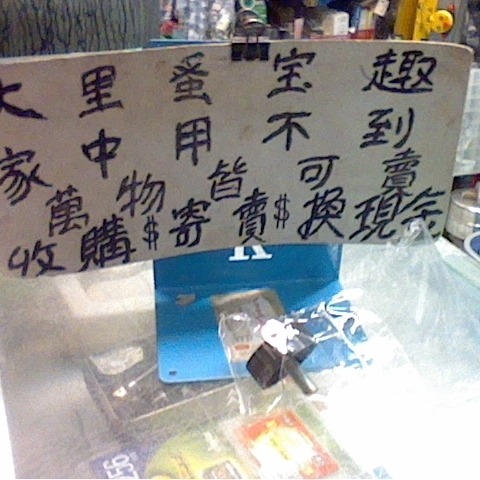 大里蚤宝趣
家中用不到
萬物皆可賣
收購$寄賣$換現金
K
256